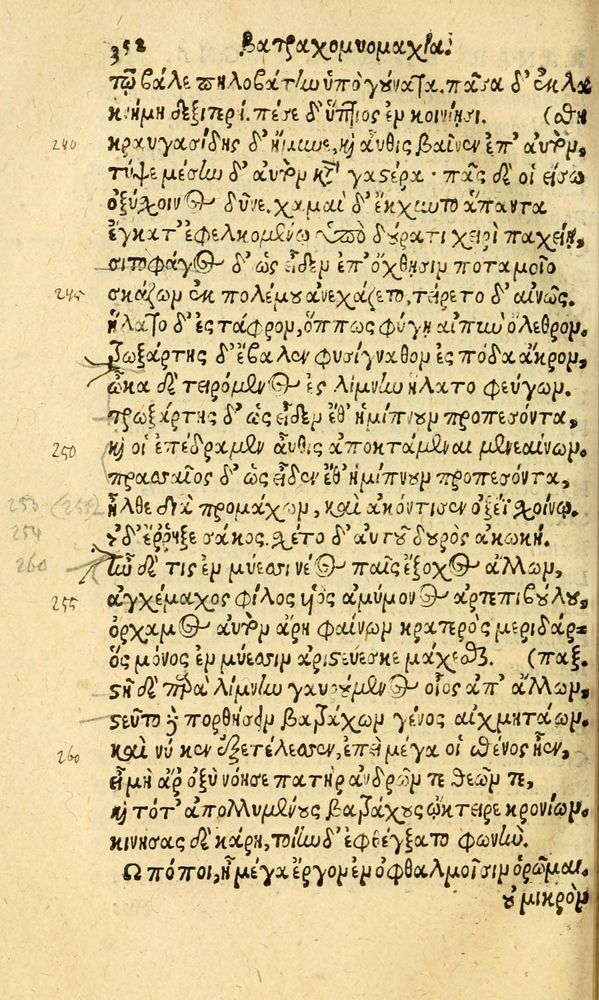 352 Βατραχομυομαχία.
τῷ βάλε πηλοβάτην ὑπὸ γούνατα. πᾶσα δ' ἐκλά
κνήμη δεξιτερὴ. πέσε δ' ὕπτιος ἐν κονίῃσι. (σθη
240 κραυγασίδης δ' ἤμυνε, καὶ αὖθις βαῖνεν ἐπ' αὐτὸν,
τύψε μέσην δ' αὐτὸν κατὰ γαστέρα· πᾶς δέ οἱ εἴσω
ὀξύχοινος δῦνε. χαμαὶ δ' ἔκχυντο ἅπαντα
ἔγκατ' ἐφελκομένῳ ὑπὸ δούρατι χειρὶ παχείῃ,
σιτοφάγος δ' ὡς εἶδεν ἐπ' ὄχθῃσιν ποταμοῖο
245 σκάζων ἐκ πολέμου ἀνεχάζετο, τείρετο δ' αἰνῶς.
ἥλατο δ' ἐς τάφρον, ὅππως φύγῃ αἰπὺν ὄλεθρον.
τρωξάρτης δ' ἔβαλεν φυσίγναθον ἐς πόδα ἄκρον,
ὦκα δὲ τειρόμενος ἐς λίμνην ἥλατο φεύγων.
τρωξάρτης δ' ὡς εἶδεν ἔθ' ἡμίπνουν προπεσόντα,
250 καὶ οἱ ἐπέδραμεν αὖθις ἀποκτάμεναι μενεαίνων.
πρασσαῖος δ' ὡς εἶδεν ἔθ' ἡμίπνουν προπεσόντα,
253 (255) ἦλθε διὰ προμάχων, καὶ ἀκόντισεν ὀξέϊ χοίνῳ.
254 οὐδ' ἔῤῥηξε σάκος. σχέτο δ' αὐτοῦ δουρὸς ἀκωκή.
260 ἦν δέ τις ἐν μύεσσι νέος παῖς ἔξοχος ἄλλων,
255 ἀγχέμαχος φίλος υἱὸς ἀμύμονος ἀρτεπιβούλου,
ὄρχαμος αὐτὸν ἄρη φαίνων κρατερὸς μεριδάρ-
ὃς μόνος ἐν μύεσσιν ἀρίστευεσκε μάχεσθαι. (παξ.
στῆ δὲ παρὰ λίμνην γαυρούμενος οἶος ἀπ' ἄλλων,
στεῦτο δὲ πορθήσειν βατράχων γένος αἰχμητάων.
260 καὶ νύ κεν ἐξετέλεσσεν, ἐπεὶ μέγα οἱ σθένος ἦεν,
εἰ μὴ ἄρ' ὀξὺ νόησε πατὴρ ἀνδρῶν τε θεῶν τε,
καὶ τότ' ἀπολλυμένους βατράχους ᾤκτειρε κρονίων.
κινήσας δὲ κάρη, τοίην δ' ἐφθέγξατο φωνήν.
Ω πόποι, ἦ μέγα ἔργον ἐν ὀφθαλμοῖσιν ὁρῶμαι.
οὐ μικρὸν